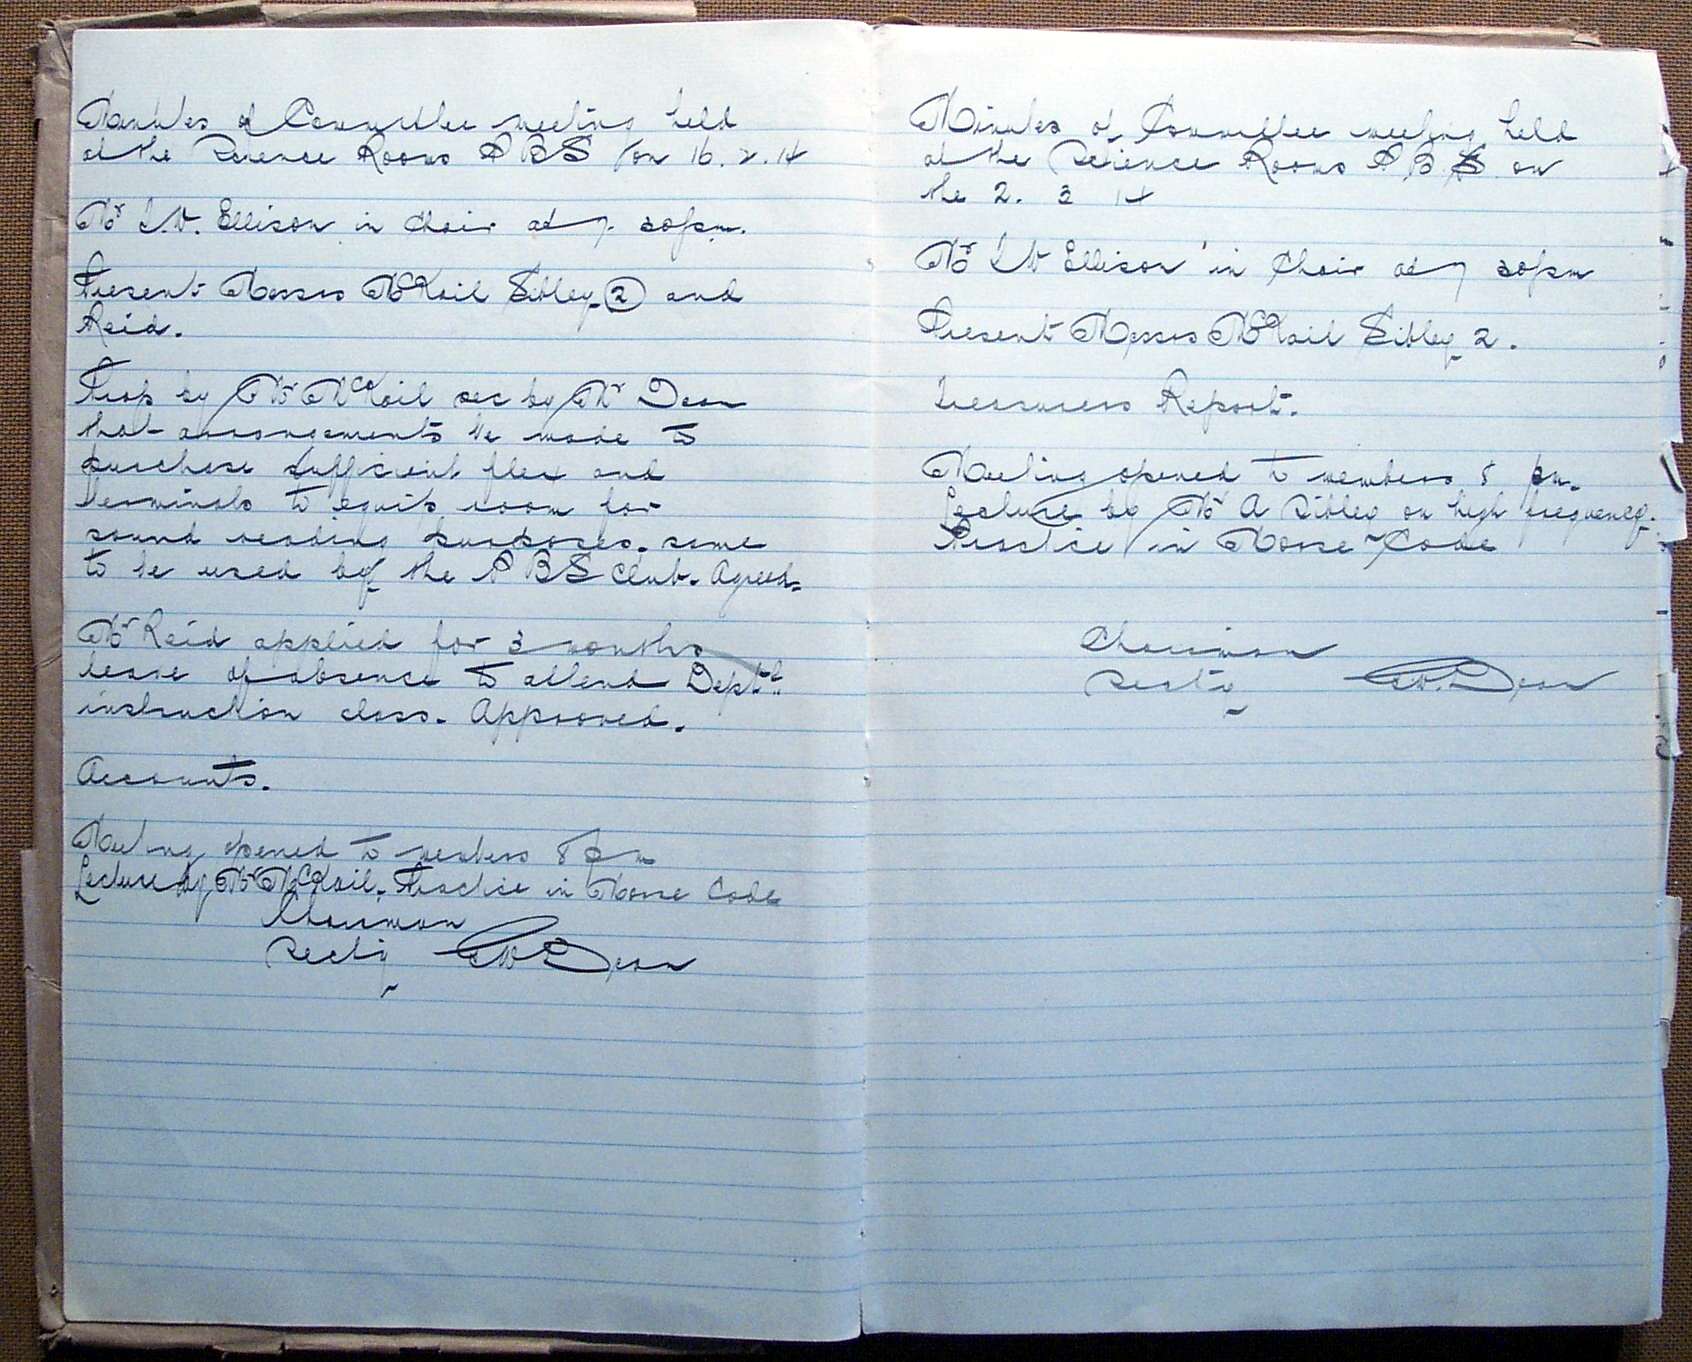 Minutes of Committee meeting held
at the Science Rooms P B S on 16.2.14
Mr I.V. Ellison in Chair at 7.30pm.
Present Messrs McKail Sibley (2) and
Reid.
Prop by Mr McKail sec by Mr Dean
that arrangements be made to
purchase sufficient flex and
terminals to equip room for
sound reading purposes. same
to be used by the P B S Club. Agreed.
Mr Reid applied for 3 months
leave of absence to attend Deptl
instruction class. Approved.
Accounts.
Meeting opened to members 8 pm
Lecture by Mr McKail. Practice in Morse Code
Chairman
Secty W Dean
Minutes of Committee meeting held
at the Science Rooms P B S on
the 2. 3 14
Mr I V Ellison in Chair at 7 30pm
Present Messrs McKail Sibley 2.
Treasurers Report.
Meeting opened to members 8 pm.
Lecture by Mr A Sibley on high frequency.
Practice in Morse Code
Chairman
Secty W. Dean